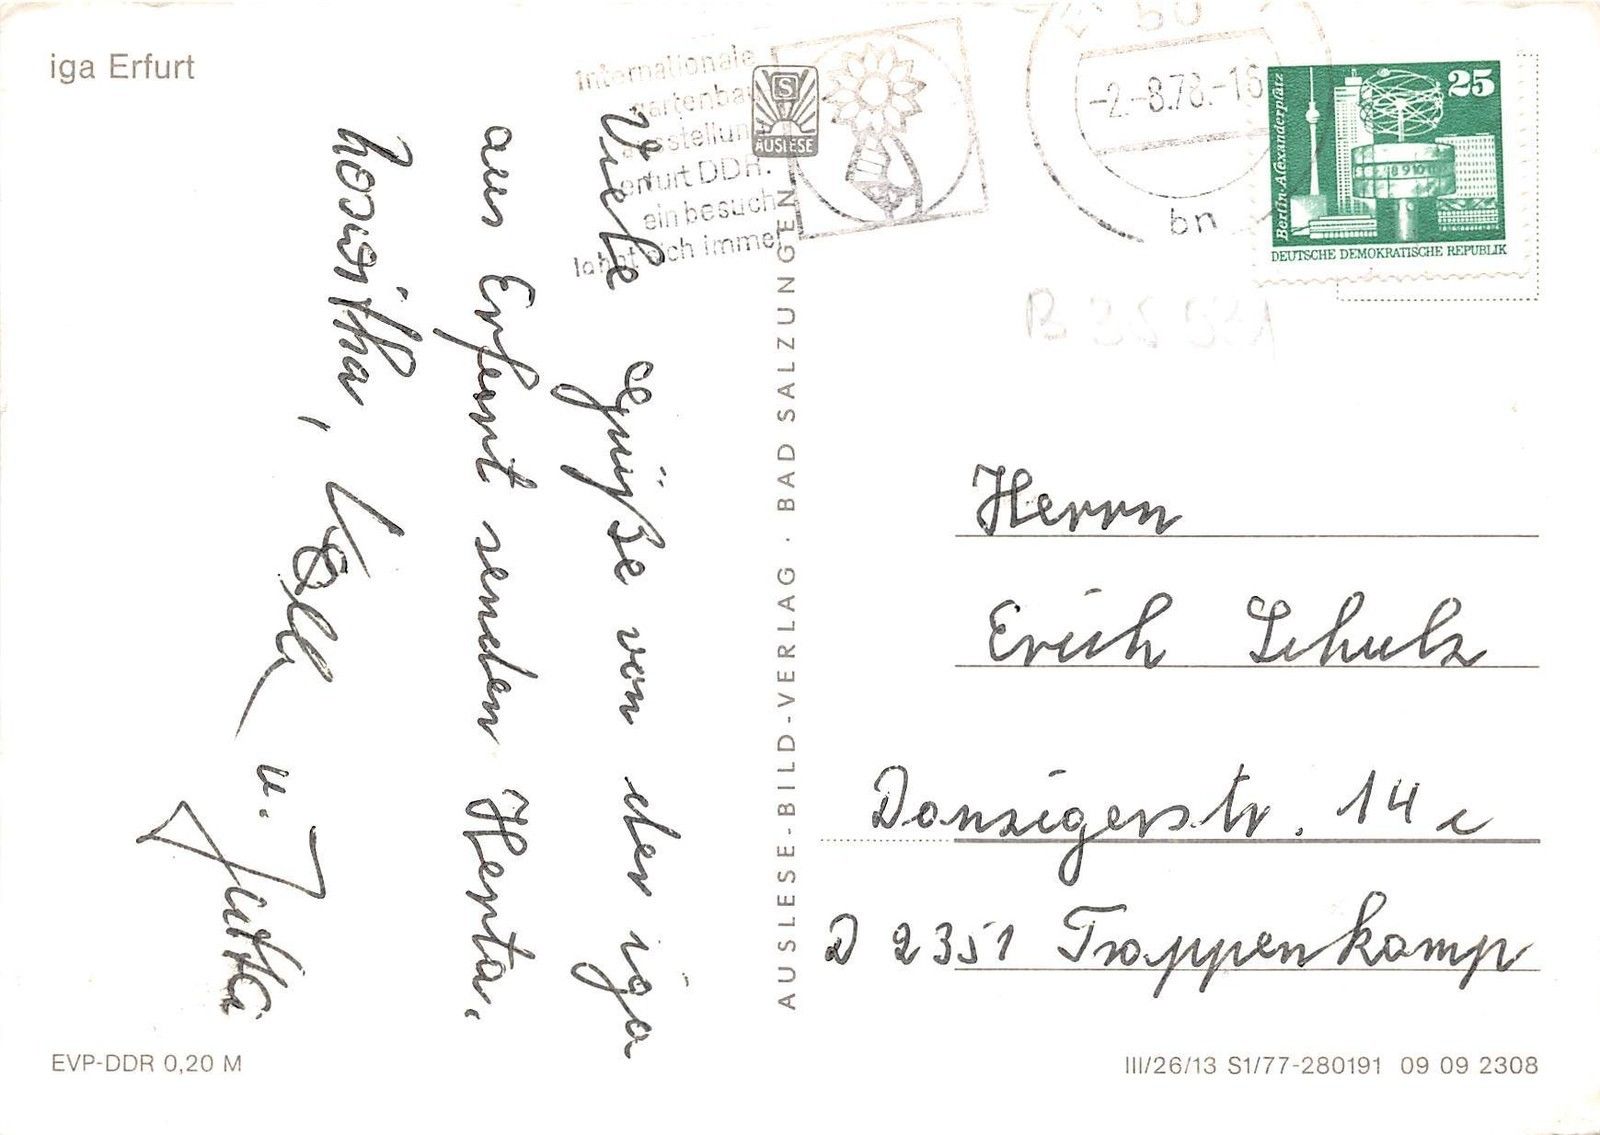 iga Erfurt
Internationale
gartenbau
ausstellung
erfurt DDR.
ein besuch
lohnt sich immer
S
AUSLESE
-2.-8.78.-16
bn
25
Berlin-Alexanderplatz
DEUTSCHE DEMOKRATISCHE REPUBLIK
Viele Grüße von der iga
aus Erfurt senden Herta,
Roswitha,
u.
Jutta
AUSLESE-BILD-VERLAG · BAD SALZUNGEN
Herrn
Erich Schulz
Danzigerstr. 14 c
D 2351 Trappenkamp
EVP-DDR 0,20 M
III/26/13 S1/77-280191 09 09 2308